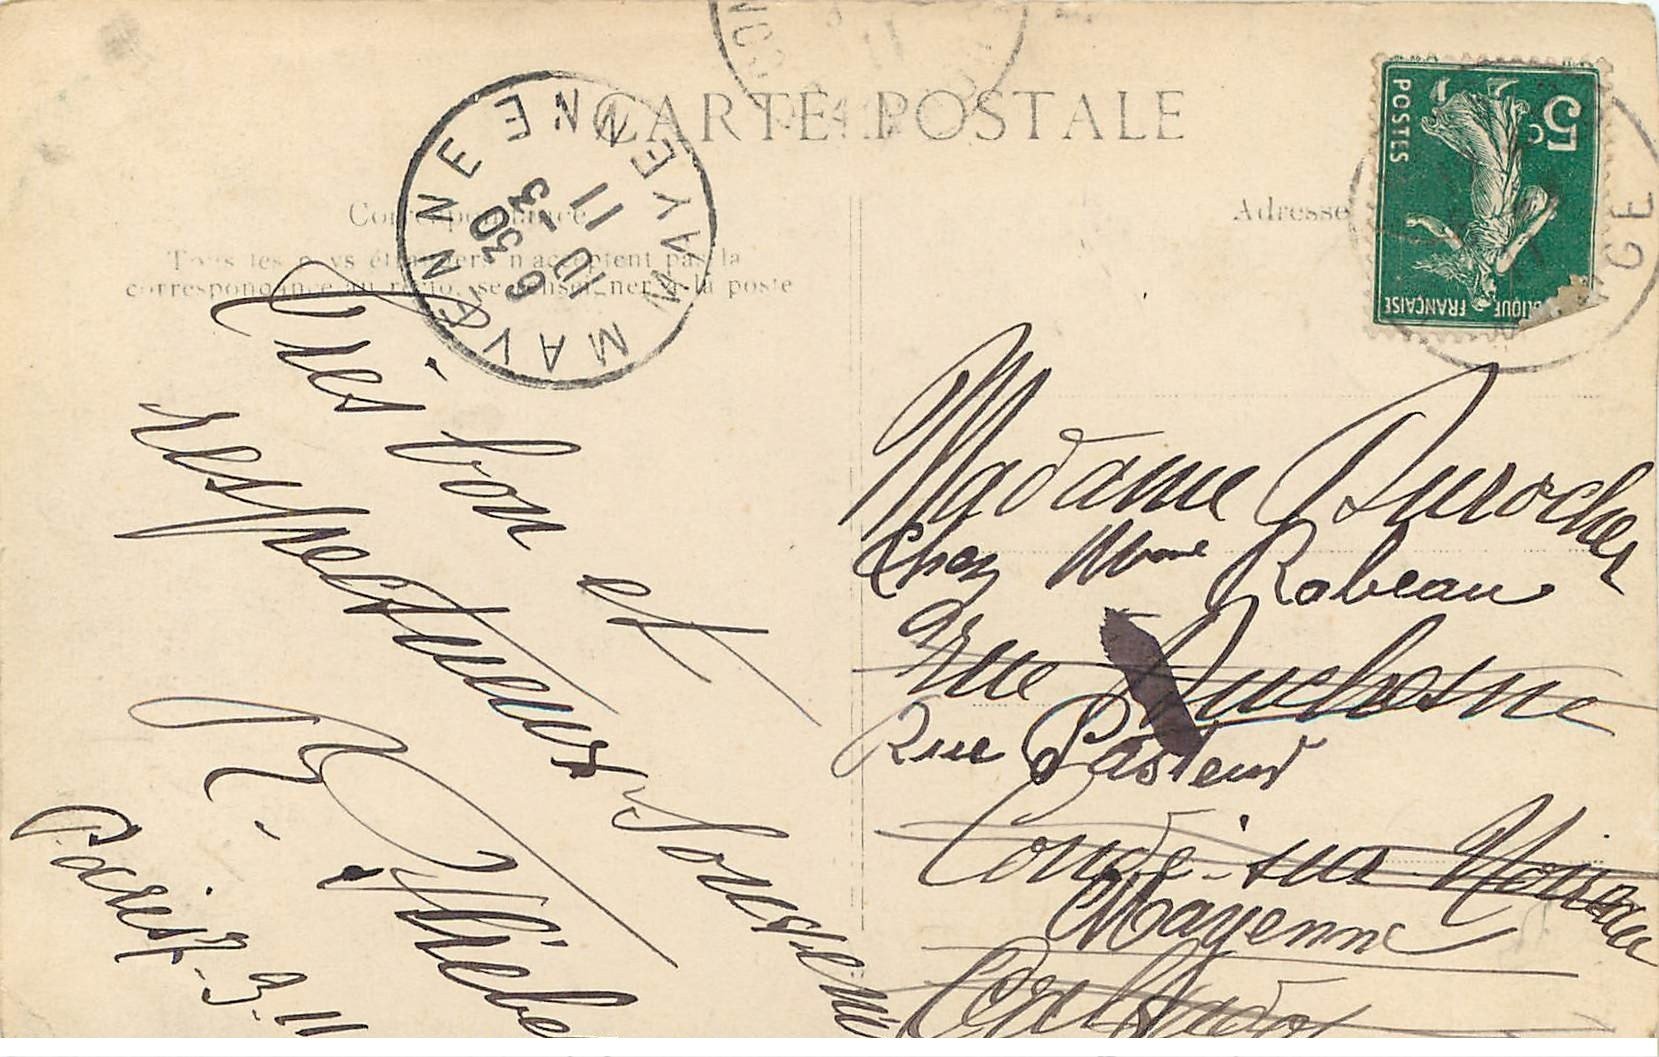 CARTE POSTALE
Correspondance
Adresse
Tous les pays étrangers n'acceptent pas la
correspondance au recto, se renseigner à la poste
MAYENNE MAYENNE
6 30
10 - 3
11
5c
POSTES
FRANÇAISE
Très bon et
respectueux souvenir
Paris 7-3-11
Madame Durocher
Chez Mme Rabeau
rue Duchesne
Rue Pasteur
Condé-sur-Noireau
Mayenne
Calvados